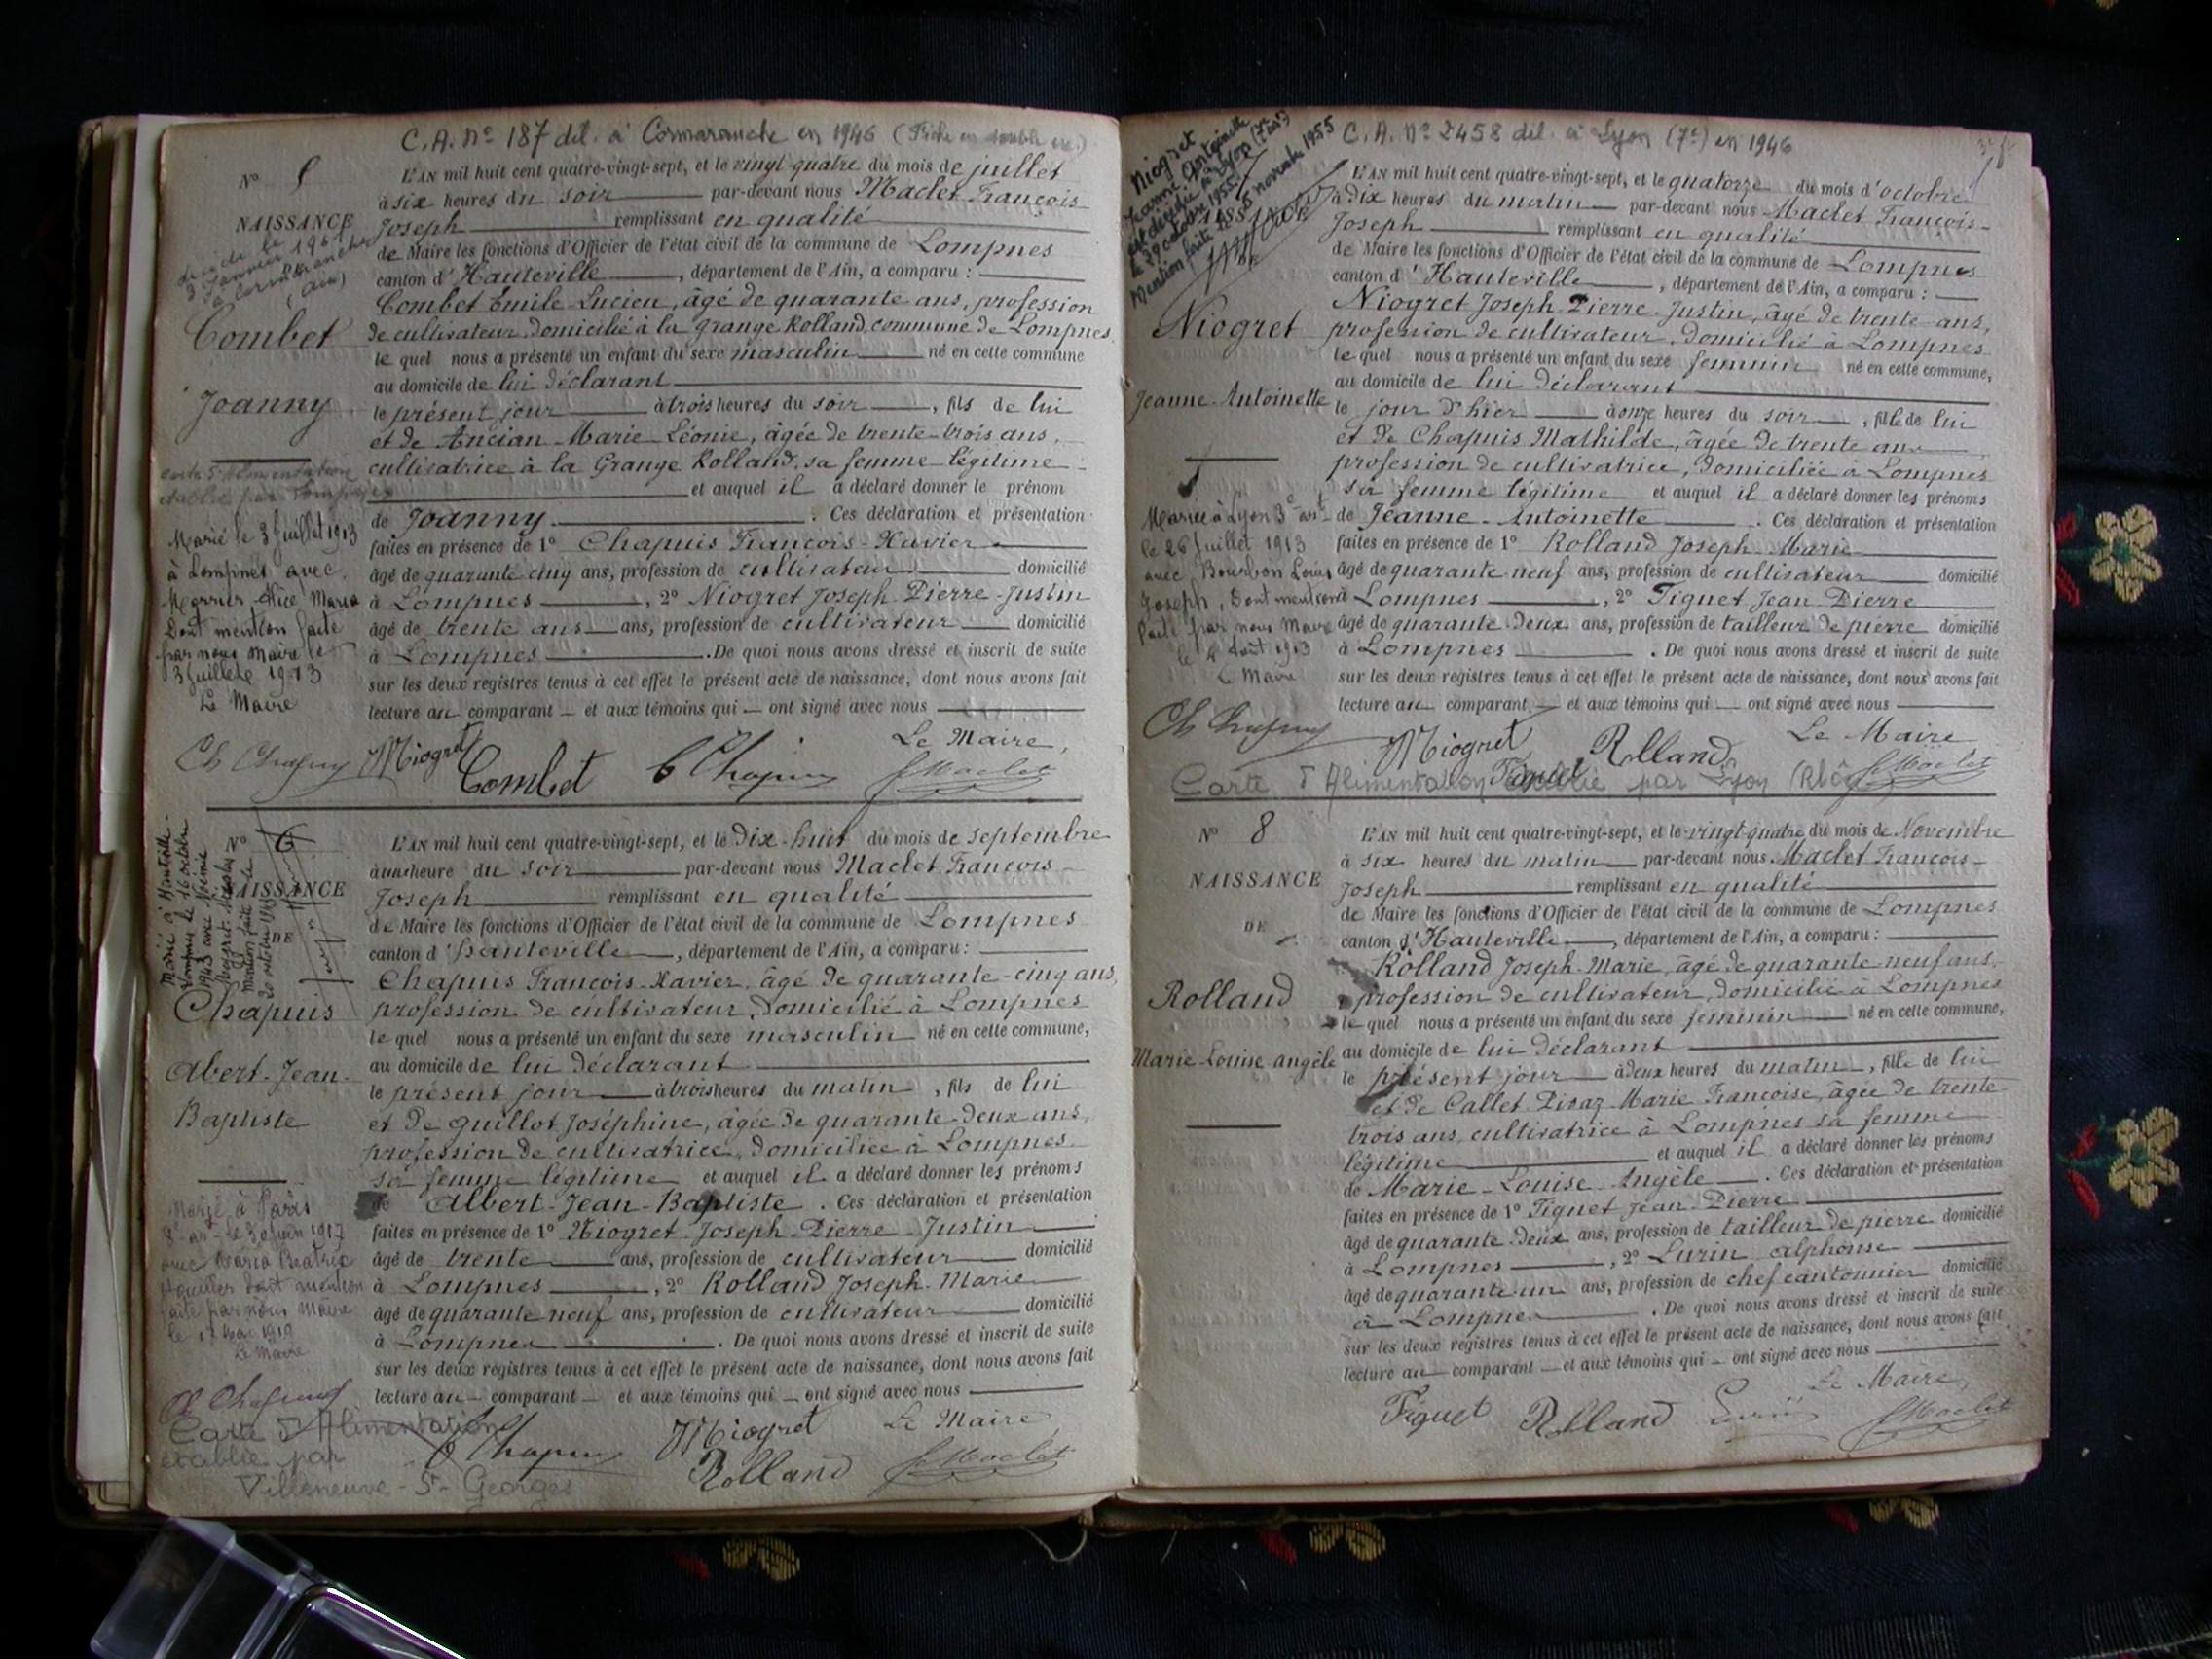 C.A. Nº 187 dél. à Cormaranche en 1946 (Fiche en double ex.)
Nº 5
NAISSANCE
décédé le
3 janvier 196
à Cormaranche
(Ain)
Combet
Joanny
carte d'Alimentation
établie par
Marié le 3 juillet 1913
à Lompnes avec
Mernier Alice Maria
Dont mention faite
par nous Maire le
3 juillet 1913
Le Maire
L'AN mil huit cent quatre-vingt-sept, et le vingt quatre du mois de juillet
à six heures du soir par-devant nous Maclet François
Joseph remplissant en qualité
de Maire les fonctions d'Officier de l'état civil de la commune de Lompnes
canton d'Hauteville, département de l'Ain, a comparu :
Combet Emile Lucien, âgé de quarante ans, profession
de cultivateur, domicilié à la grange Rolland, commune de Lompnes
le quel nous a présenté un enfant du sexe masculin né en cette commune
au domicile de lui déclarant
le présent jour à trois heures du soir, fils de lui
et de Ancian Marie Léonie, âgée de trente-trois ans,
cultivatrice à la Grange Rolland, sa femme légitime
et auquel il a déclaré donner le prénom
de Joanny. Ces déclaration et présentation
faites en présence de 1º Chapuis François-Xavier
âgé de quarante cinq ans, profession de cultivateur domicilié
à Lompnes, 2º Niogret Joseph Pierre-Justin
âgé de trente ans ans, profession de cultivateur domicilié
à Lompnes. De quoi nous avons dressé et inscrit de suite
sur les deux registres tenus à cet effet le présent acte de naissance, dont nous avons fait
lecture au comparant et aux témoins qui ont signé avec nous
Le Maire,
Ch Chapuy Niogret Combet C Chapuis F Maclet
Nº 6
NAISSANCE
DE
Marié à Hauteville-
Lompnes le 16 octobre
1943 avec Noémie
Mention faite le
20 octobre 1943
Chapuis
Albert-Jean-
Baptiste
Marié à Paris
8e art le 30 juin 1917
avec Maria Béatrice
dont mention
faite par nous Maire
le 17 Mai 1919
Le Maire
Ch Chapuy
Carte d'Alimentation
établie par
Villeneuve-St-Georges
L'AN mil huit cent quatre-vingt-sept, et le Dix-huit du mois de septembre
à une heure du soir par-devant nous Maclet François-
Joseph remplissant en qualité
de Maire les fonctions d'Officier de l'état civil de la commune de Lompnes
canton d'Hauteville, département de l'Ain, a comparu :
Chapuis François-Xavier, âgé de quarante-cinq ans,
profession de cultivateur, domicilié à Lompnes
le quel nous a présenté un enfant du sexe masculin né en cette commune,
au domicile de lui déclarant
le présent jour à trois heures du matin, fils de lui
et de Guillot Joséphine, âgée de quarante-deux ans,
profession de cultivatrice, domiciliée à Lompnes
sa femme légitime et auquel il a déclaré donner les prénoms
de Albert-Jean-Baptiste. Ces déclaration et présentation
faites en présence de 1º Niogret Joseph Pierre Justin
âgé de trente ans, profession de cultivateur domicilié
à Lompnes, 2º Rolland Joseph-Marie
âgé de quarante neuf ans, profession de cultivateur domicilié
à Lompnes. De quoi nous avons dressé et inscrit de suite
sur les deux registres tenus à cet effet le présent acte de naissance, dont nous avons fait
lecture au comparant et aux témoins qui ont signé avec nous
Le Maire
C Chapuis Niogret Rolland F Maclet
C.A. Nº 2458 dél. à Lyon (7e) en 1946
Niogret
Jeanne Antoinette
est décédée à Lyon (7e arrt)
le 29 octobre 1955.
Mention faite le 5 novembre 1955
NAISSANCE
DE
Niogret
Jeanne-Antoinette
Mariée à Lyon 3e arrt
le 26 juillet 1913
avec Bourbon Louis
Joseph, dont mention
faite par nous Maire
le 4 août 1913
Le Maire
L'AN mil huit cent quatre-vingt-sept, et le quatorze du mois d'octobre
à dix heures du matin par-devant nous Maclet François-
Joseph remplissant en qualité
de Maire les fonctions d'Officier de l'état civil de la commune de Lompnes
canton d'Hauteville, département de l'Ain, a comparu :
Niogret Joseph Pierre-Justin, âgé de trente ans,
profession de cultivateur, domicilié à Lompnes
le quel nous a présenté un enfant du sexe féminin né en cette commune,
au domicile de lui déclarant
le jour d'hier à onze heures du soir, fille de lui
et de Chapuis Mathilde, âgée de trente ans
profession de cultivatrice, domiciliée à Lompnes
sa femme légitime et auquel il a déclaré donner les prénoms
de Jeanne-Antoinette. Ces déclaration et présentation
faites en présence de 1º Rolland Joseph-Marie
âgé de quarante-neuf ans, profession de cultivateur domicilié
à Lompnes, 2º Figuet Jean-Pierre
âgé de quarante-deux ans, profession de tailleur de pierre domicilié
à Lompnes. De quoi nous avons dressé et inscrit de suite
sur les deux registres tenus à cet effet le présent acte de naissance, dont nous avons fait
lecture au comparant et aux témoins qui ont signé avec nous
Le Maire
Ch Chapuy Niogret Rolland Figuet F Maclet
Carte d'Alimentation établie par Lyon (Rhône)
Nº 8
NAISSANCE
DE
Rolland
Marie-Louise angèle
L'AN mil huit cent quatre-vingt-sept, et le vingt-quatre du mois de Novembre
à six heures du matin par-devant nous Maclet François-
Joseph remplissant en qualité
de Maire les fonctions d'Officier de l'état civil de la commune de Lompnes
canton d'Hauteville, département de l'Ain, a comparu :
Rolland Joseph-Marie, âgé de quarante neuf ans,
profession de cultivateur, domicilié à Lompnes
le quel nous a présenté un enfant du sexe féminin né en cette commune,
au domicile de lui déclarant
le présent jour à deux heures du matin, fille de lui
et de Callet Pivaz Marie Françoise, âgée de trente
trois ans, cultivatrice à Lompnes sa femme
légitime et auquel il a déclaré donner les prénoms
de Marie-Louise Angèle. Ces déclaration et présentation
faites en présence de 1º Figuet Jean-Pierre
âgé de quarante-deux ans, profession de tailleur de pierre domicilié
à Lompnes, 2º Lurin alphonse
âgé de quarante-un ans, profession de chef cantonnier domicilié
à Lompnes. De quoi nous avons dressé et inscrit de suite
sur les deux registres tenus à cet effet le présent acte de naissance, dont nous avons fait
lecture au comparant et aux témoins qui ont signé avec nous
Le Maire,
Figuet Rolland Lurin F Maclet